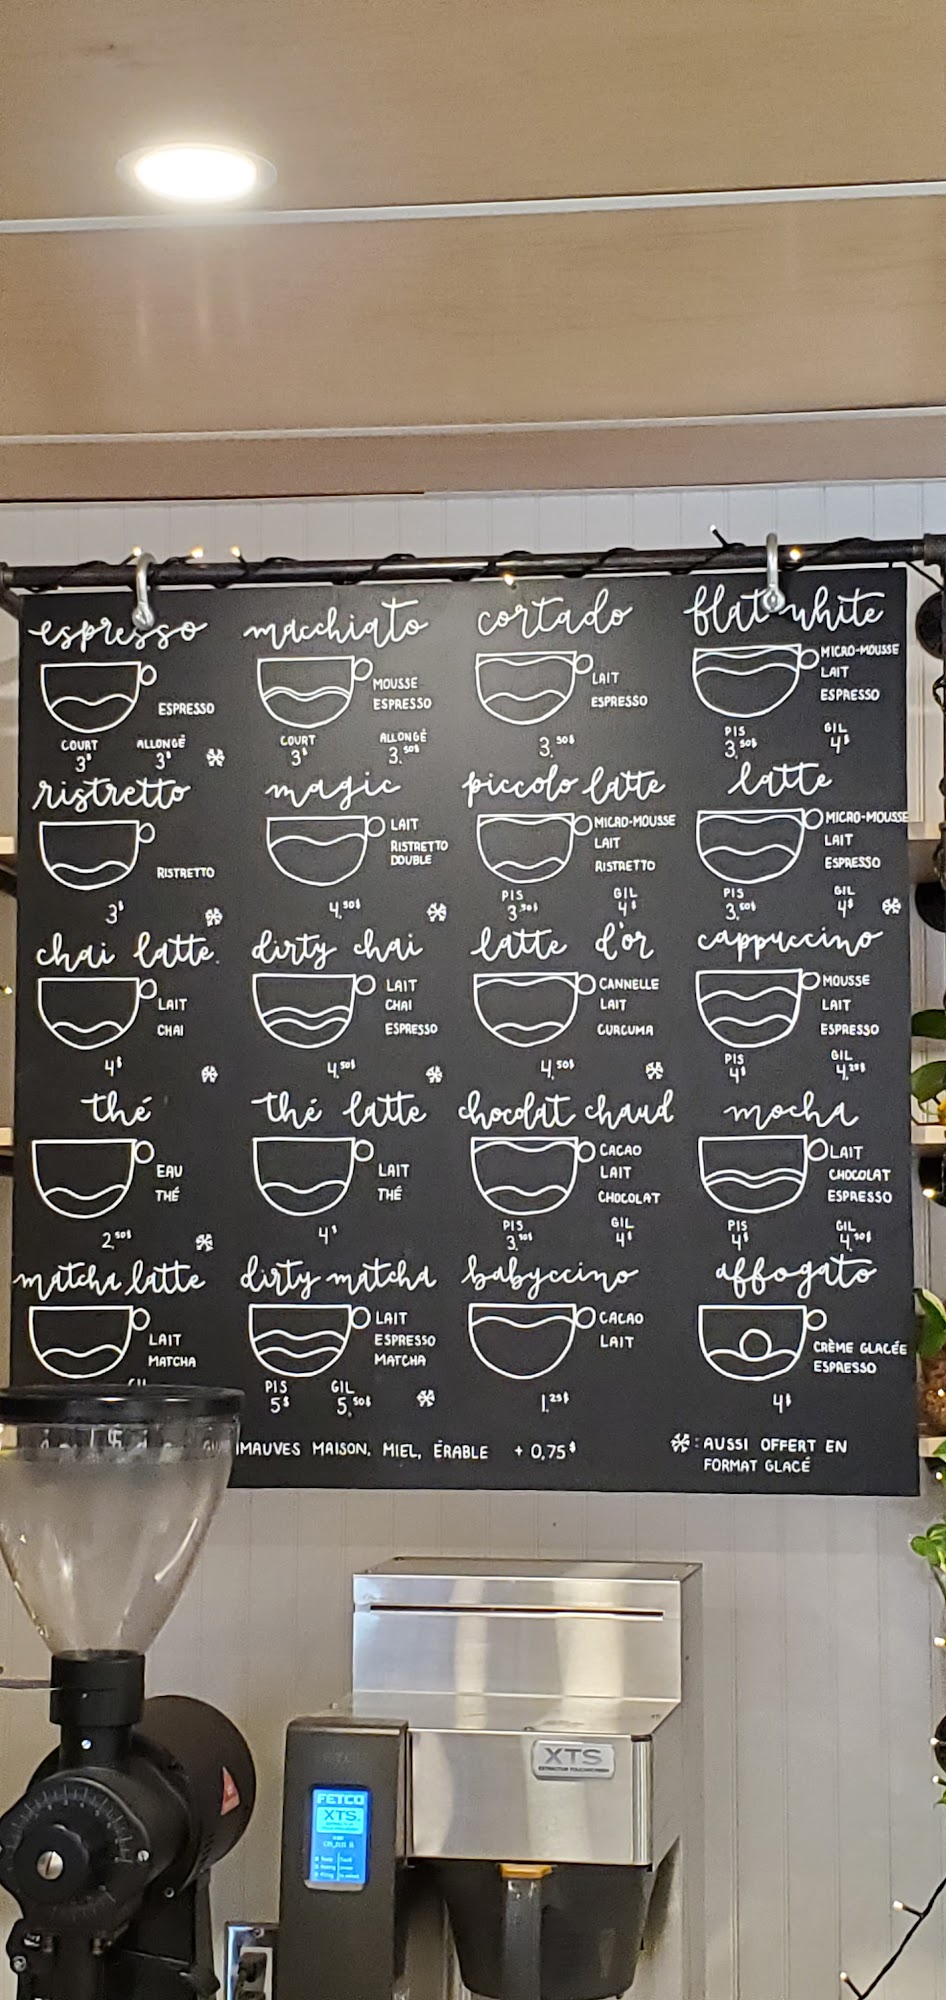 espresso
ESPRESSO
COURT ALLONGÉ
3$ 3$
macchiato
MOUSSE
ESPRESSO
COURT ALLONGÉ
3$ 3.50$
cortado
LAIT
ESPRESSO
3.50$
flat white
MICRO-MOUSSE
LAIT
ESPRESSO
PIS GIL
3.50$ 4$
ristretto
RISTRETTO
3$
magic
LAIT
RISTRETTO
DOUBLE
4.50$
piccolo latte
MICRO-MOUSSE
LAIT
RISTRETTO
PIS GIL
3.50$ 4$
latte
MICRO-MOUSSE
LAIT
ESPRESSO
PIS GIL
3.50$ 4$
chai latte
LAIT
CHAI
4$
dirty chai
LAIT
CHAI
ESPRESSO
4.50$
latte d'or
CANNELLE
LAIT
CURCUMA
4.50$
cappuccino
MOUSSE
LAIT
ESPRESSO
PIS GIL
4$ 4.25$
thé
EAU
THÉ
2.50$
thé latte
LAIT
THÉ
4$
chocolat chaud
CACAO
LAIT
CHOCOLAT
PIS GIL
3.50$ 4$
mocha
LAIT
CHOCOLAT
ESPRESSO
PIS GIL
4$ 4.50$
matcha latte
LAIT
MATCHA
dirty matcha
LAIT
ESPRESSO
MATCHA
PIS GIL
5$ 5.50$
babyccino
CACAO
LAIT
1.25$
affogato
CRÈME GLACÉE
ESPRESSO
4$
MAISON, MIEL, ÉRABLE + 0,75$
: AUSSI OFFERT EN
FORMAT GLACÉ
XTS
EXTRACTOR TOUCHSCREEN
FETCO
XTS